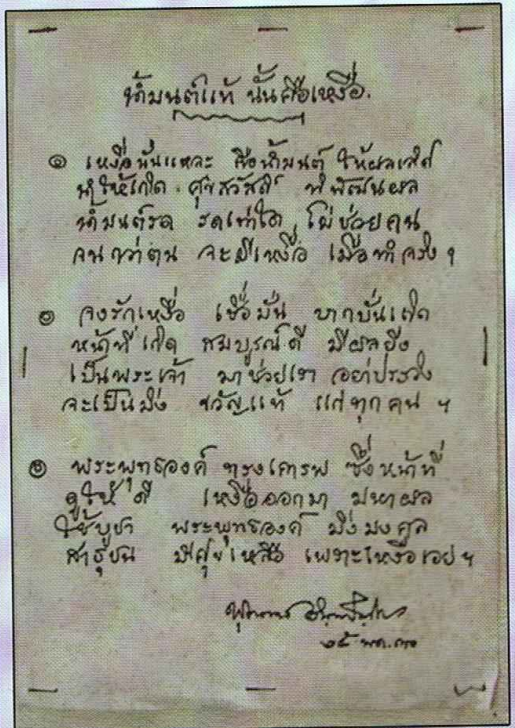 น้ำมนต์แท้ นั้นคือเหงื่อ.
๑ เหงื่อนั่นแหละ คือน้ำมนต์ ให้ผลเลิศ
นำให้เกิด ศุขสวัสดิ์ พิพัฒนผล
น้ำมนต์รด รดเท่าใด ไม่ช่วยคน
จนกว่าตน จะมีเหงื่อ เมื่อทำจริง ฯ
๒ จงรักเหงื่อ เชื่อมั่น บากบั่นเถิด
หน้าที่เกิด สมบูรณ์ดี มีผลยิ่ง
เป็นพระเจ้า มาช่วยเรา อย่าประวิง
จะเป็นมิ่ง ขวัญแท้ แก่ทุกคน ฯ
๓ พระพุทธองค์ ทรงเคารพ ซึ่งหน้าที่
ดูให้ดี เหงื่อออกมา มหาผล
ใช้บูชา พระพุทธองค์ มิ่งมงคล
สาธุชน มีศุขเหลือ เพราะเหงื่อเอย ฯ
พุทธทาส อินทปัญโญ